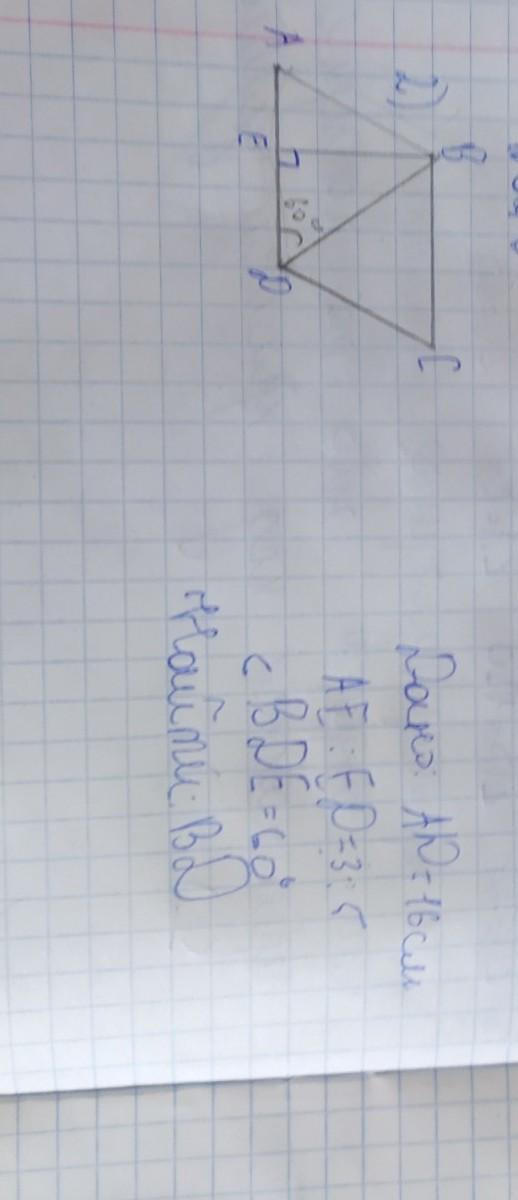 2)
B
C
A
E
D
60°
Дано: AD=16см
AE:ED=3:5
< BDE=60°
Найти: BD